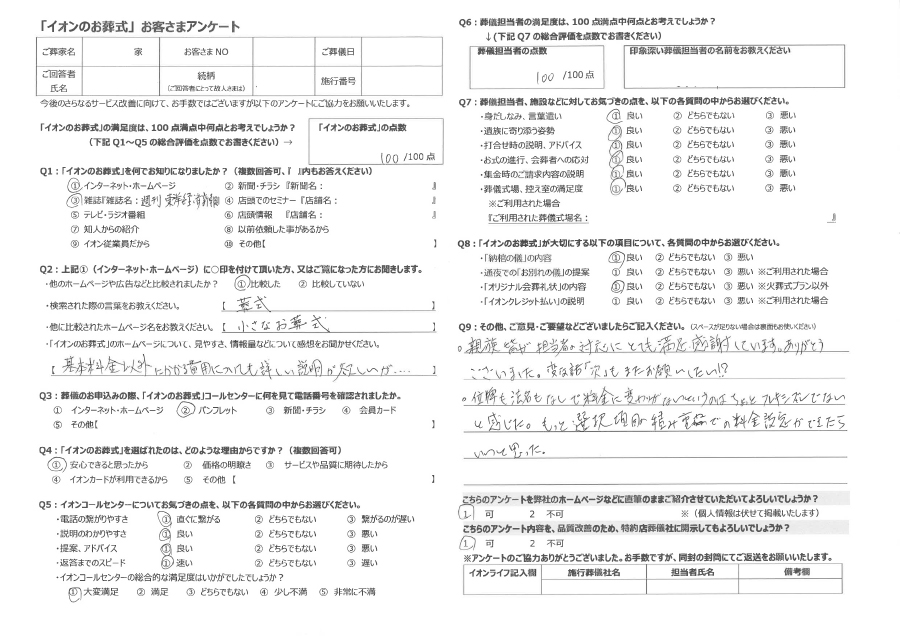 「イオンのお葬式」お客さまアンケート
ご葬家名 家 お客さまNO ご葬儀日
ご回答者氏名 続柄(ご回答者にとって故人さまは) 施行番号
今後のさらなるサービス改善に向けて、お手数ではございますが以下のアンケートにご協力をお願いいたします。
「イオンのお葬式」の満足度は、100点満点中何点とお考えでしょうか?
(下記Q1～Q5の総合評価を点数でお書きください)→
「イオンのお葬式」の点数
100/100点
Q1:「イオンのお葬式」を何でお知りになりましたか?(複数回答可、『 』内もお答えください)
①インターネット・ホームページ ②新聞・チラシ『新聞名: 』
③雑誌『雑誌名:週刊東洋経済 ④店頭でのセミナー『店舗名: 』
⑤テレビ・ラジオ番組 ⑥店頭情報 『店舗名: 』
⑦知人からの紹介 ⑧以前依頼した事があるから
⑨イオン従業員だから ⑩その他【 】
Q2:上記①(インターネット・ホームページ)に○印を付けて頂いた方、又はご覧になった方にお聞きします。
・他のホームページや広告などと比較されましたか? ①比較した ②比較していない
・検索された際の言葉をお教えください。【 葬式 】
・他に比較されたホームページ名をお教えください。【 小さなお葬式 】
・「イオンのお葬式」のホームページについて、見やすさ、情報量などについて感想をお聞かせください。
【 基本料金以外にかかる費用についても詳しい説明が欲しいが.... 】
Q3:葬儀のお申込みの際、「イオンのお葬式」コールセンターに何を見て電話番号を確認されましたか。
① インターネット・ホームページ ② パンフレット ③ 新聞・チラシ ④ 会員カード
⑤ その他【 】
Q4:「イオンのお葬式」を選ばれたのは、どのような理由からですか?(複数回答可)
① 安心できると思ったから ② 価格の明瞭さ ③ サービスや品質に期待したから
④ イオンカードが利用できるから ⑤ その他【 】
Q5:イオンコールセンターについてお気づきの点を、以下の各質問の中からお選びください。
・電話の繋がりやすさ ①直ぐに繋がる ②どちらでもない ③繋がるのが遅い
・説明のわかりやすさ ①良い ②どちらでもない ③悪い
・提案、アドバイス ①良い ②どちらでもない ③悪い
・返答までのスピード ①速い ②どちらでもない ③遅い
・イオンコールセンターの総合的な満足度はいかがでしたでしょうか?
①大変満足 ②満足 ③どちらでもない ④少し不満 ⑤非常に不満
Q6:葬儀担当者の満足度は、100点満点中何点とお考えでしょうか?
↓(下記Q7の総合評価を点数でお書きください)
葬儀担当者の点数 印象深い葬儀担当者の名前をお教えください
100/100点
Q7:葬儀担当者、施設などに対してお気づきの点を、以下の各質問の中からお選びください。
・身だしなみ、言葉遣い ①良い ②どちらでもない ③悪い
・遺族に寄り添う姿勢 ①良い ②どちらでもない ③悪い
・打合せ時の説明、アドバイス ①良い ②どちらでもない ③悪い
・お式の進行、会葬者への応対 ①良い ②どちらでもない ③悪い
・集金時のご請求内容の説明 ①良い ②どちらでもない ③悪い
・葬儀式場、控え室の満足度 ①良い ②どちらでもない ③悪い
※ご利用された場合
『ご利用された葬儀式場名: 』
Q8:「イオンのお葬式」が大切にする以下の項目について、各質問の中からお選びください。
・「納棺の儀」の内容 ①良い ②どちらでもない ③悪い
・通夜での「お別れの儀」の提案 ①良い ②どちらでもない ③悪い ※ご利用された場合
・「オリジナル会葬礼状」の内容 ①良い ②どちらでもない ③悪い ※火葬式プラン以外
・「イオンクレジット払い」の説明 ①良い ②どちらでもない ③悪い ※ご利用された場合
Q9:その他、ご意見・ご要望などございましたらご記入ください。(スペースが足りない場合は裏面もお使いください)
○親族皆が担当者の対応にとても満足感謝しています。ありがとう
ございました。変な話「次」もまたお願いしたい!!?
○位牌も法名もなしで料金に変わりがないというのはちょっとフレキシブルでない
と感じた。もっと選択項目の積み重ねでの料金設定ができたら
いいと思った。
こちらのアンケートを弊社のホームページなどに直筆のままご紹介させていただいてよろしいでしょうか?
1 可 2 不可 ※(個人情報は伏せて掲載いたします)
こちらのアンケート内容を、品質改善のため、特約店葬儀社に開示してもよろしいでしょうか?
1 可 2 不可
※アンケートのご協力ありがとうございました。お手数ですが、同封の封筒にてご返送をお願いいたします。
イオンライフ記入欄 施行葬儀社名 担当者氏名 備考欄